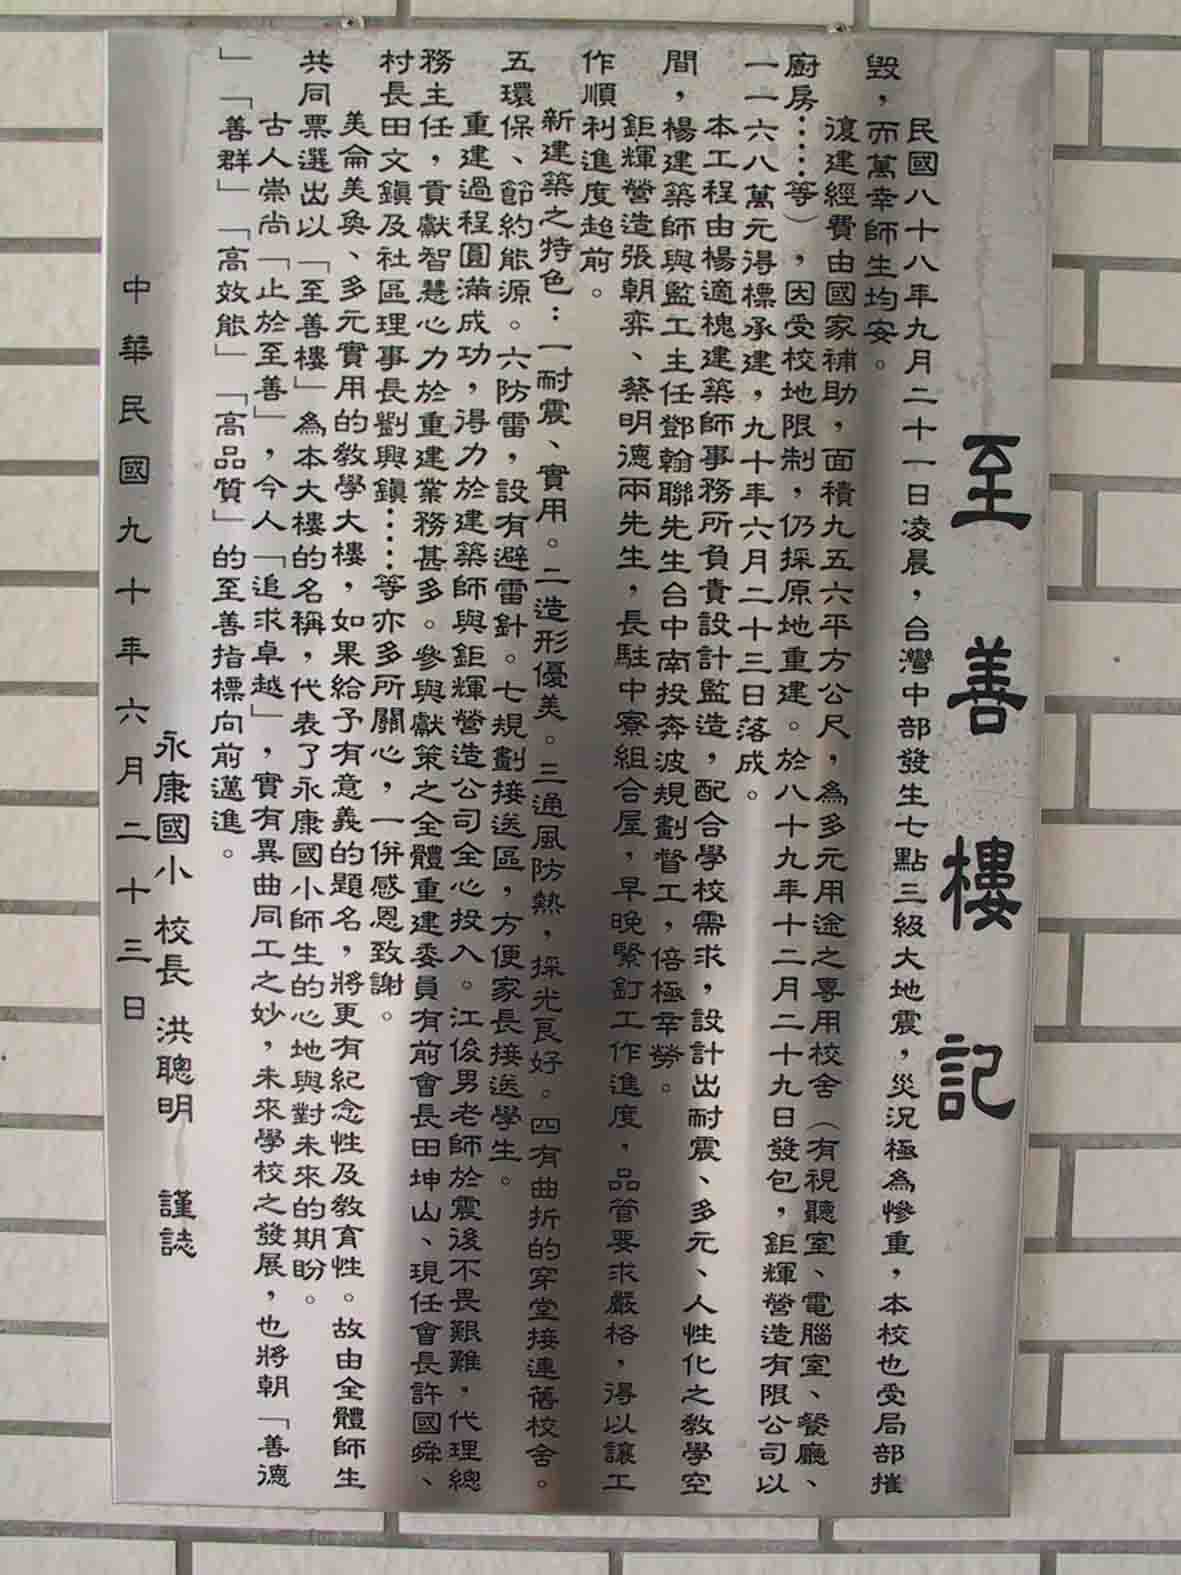 至善樓記
民國八十八年九月二十一日凌晨，台灣中部發生七點三級大地震，災況極為慘重，本校也受局部摧
毀，而萬幸師生均安。
復建經費由國家補助，面積九五六平方公尺，為多元用途之專用校舍（有視聽室、電腦室、餐廳、
廚房……等），因受校地限制，仍採原地重建。於八十九年十二月二十九日發包，鉅輝營造有限公司以
一一六八萬元得標承建，九十年六月二十三日落成。
本工程由楊適槐建築師事務所負責設計監造，配合學校需求，設計出耐震、多元、人性化之教學空
間，楊建築師與監工主任鄧翰聯先生台中南投奔波規劃督工，倍極辛勞。
鉅輝營造張朝弈、蔡明德兩先生，長駐中寮組合屋，早晚緊釘工作進度，品管要求嚴格，得以讓工
作順利進度超前。
新建築之特色：一耐震、實用。二造形優美。三通風防熱，採光良好。四有曲折的穿堂接連舊校舍。
五環保、節約能源。六防雷，設有避雷針。七規劃接送區，方便家長接送學生。
重建過程圓滿成功，得力於建築師與鉅輝營造公司全心投入。江俊男老師於震後不畏艱難，代理總
務主任，貢獻智慧心力於重建業務甚多。參與獻策之全體重建委員有前會長田坤山、現任會長許國舜、
村長田文鎮及社區理事長劉興鎮……等亦多所關心，一併感恩致謝。
美侖美奐、多元實用的教學大樓，如果給予有意義的題名，將更有紀念性及教育性。故由全體師生
共同票選出以「至善樓」為本大樓的名稱，代表了永康國小師生的心地與對未來的期盼。
古人崇尚「止於至善」，今人「追求卓越」，實有異曲同工之妙，未來學校之發展，也將朝「善德
」「善群」「高效能」「高品質」的至善指標向前邁進。
永康國小 校長 洪聰明 謹誌
中華民國九十年六月二十三日